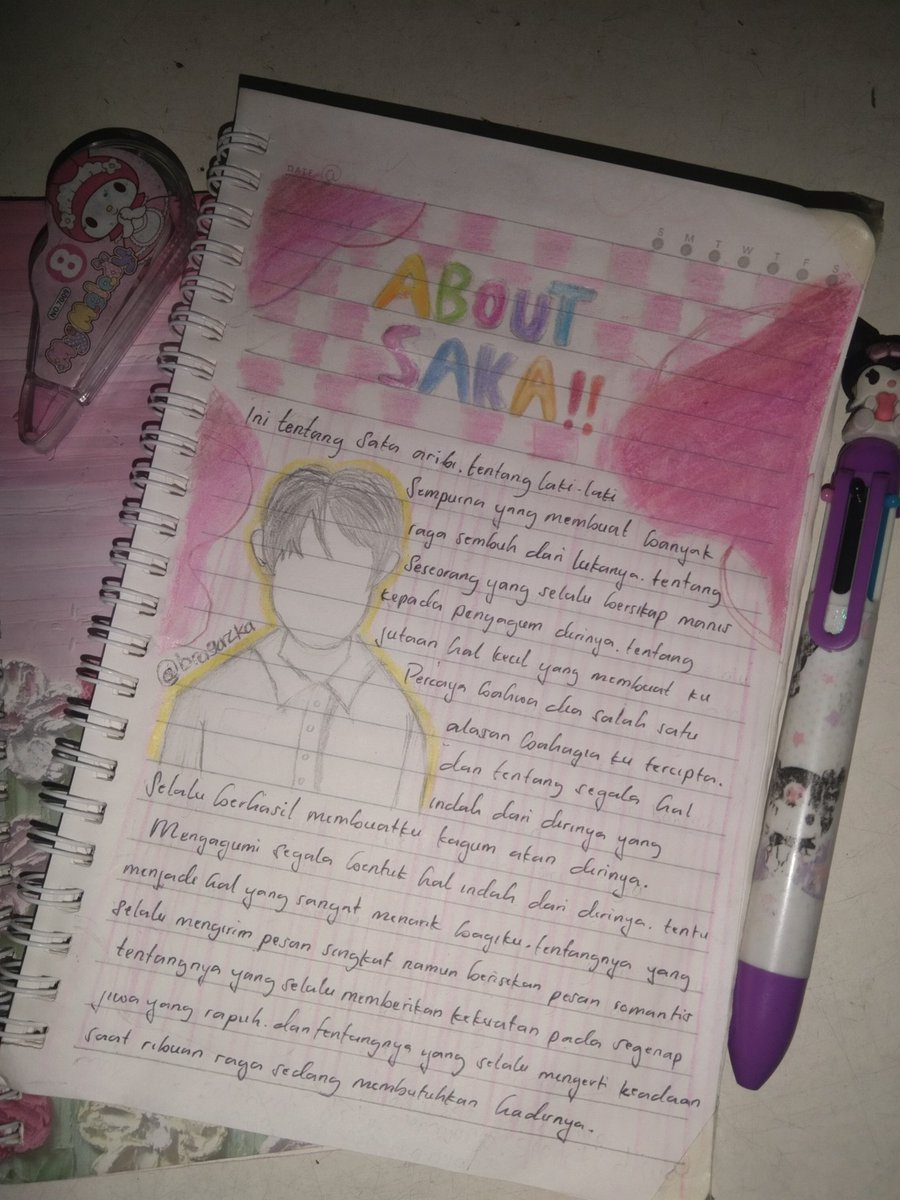 DATE
S M T W T F S
ABOUT
SAKA!!
Ini tentang saka aribi. tentang laki-laki
Sempurna yang membuat banyak
raga sembuh dari lukanya. tentang
Seseorang yang selalu bersikap manis
kepada pengagum dirinya. tentang
jutaan hal kecil yang membuat ku
Percaya bahwa dia salah satu
alasan bahagia ku tercipta.
dan tentang segala hal
indah dari dirinya yang
Selalu berhasil membuatku kagum akan dirinya.
Mengagumi segala bentuk hal indah dari dirinya. tentu
menjadi hal yang sangat menarik bagiku. tentangnya yang
selalu mengirim pesan singkat namun berisikan pesan romantis
tentangnya yang selalu memberikan kekuatan pada segenap
jiwa yang rapuh. dan tentangnya yang selalu mengerti keadaan
saat ribuan raga sedang membutuhkan hadirnya.
8
No.7009
My Melody